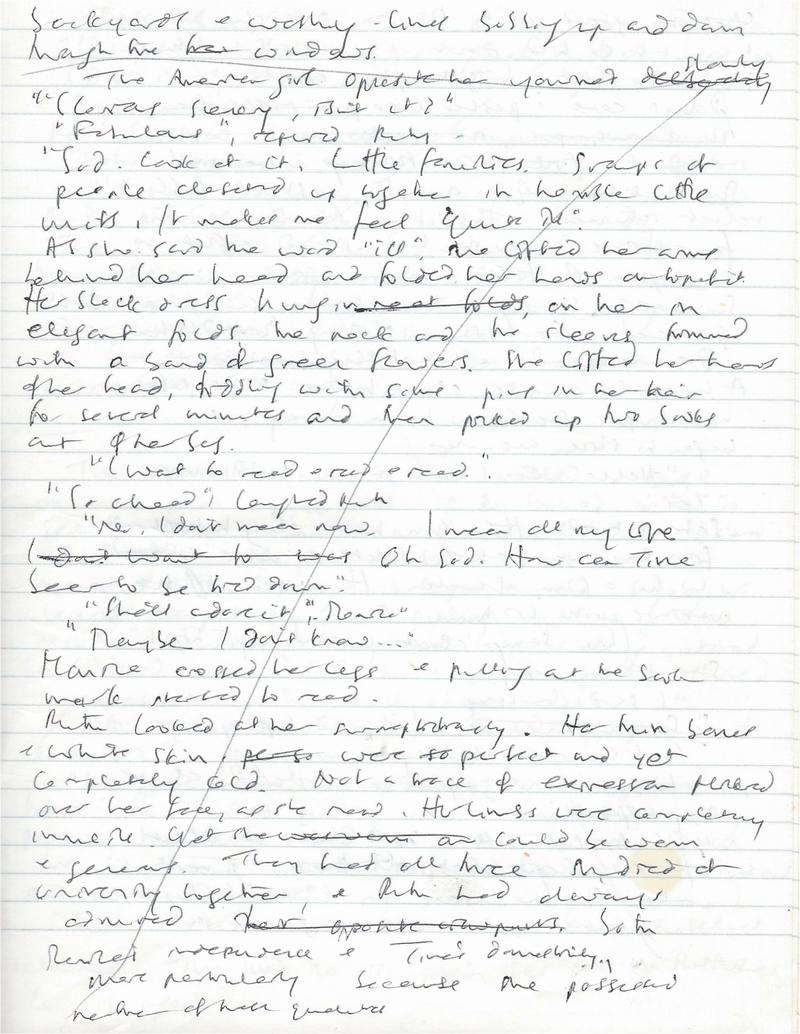 backyards & washing-lines bobbing up and down
through the her windows.
The American girl opposite her yawned deliberately slowly
scenery, isn't it?"
"Fabulous", replied Ruth
"God. Look at it. Little families. Groups of
people clustered up together in horrible little
units. It makes me feel quite ill".
As she said the word "ill", she lifted her arms
behind her head and folded her hands on top of it.
Her sleek dress hung in neat folds, on her in
elegant folds, the neck and the sleeves trimmed
with a band of green flowers. She lifted her hands
off her head, fiddling with some pins in her hair
for several minutes and then picked up two books
out of her bag.
"I want to read & read & read."
"Go ahead", laughed Ruth
"No, I don't mean now. I mean all my life
I don't want to was Oh God. How can Tina
bear to be tied down".
"She'll adore it",
"Maybe I don't know..."
crossed her legs & pulling at the book
mark started to read.
Ruth looked at her surreptitiously. Her thin bones
& white skin were so perfect and yet
completely cold. Not a trace of expression flickered
over her face, as she read. Her limbs were completely
immobile. Yet she could be warm
& generous. They had all three studied at
university together, & Ruth had always
admired their opposite viewpoints. both
independence & Tina's domesticity,
more particularly because she possessed
neither of these qualities